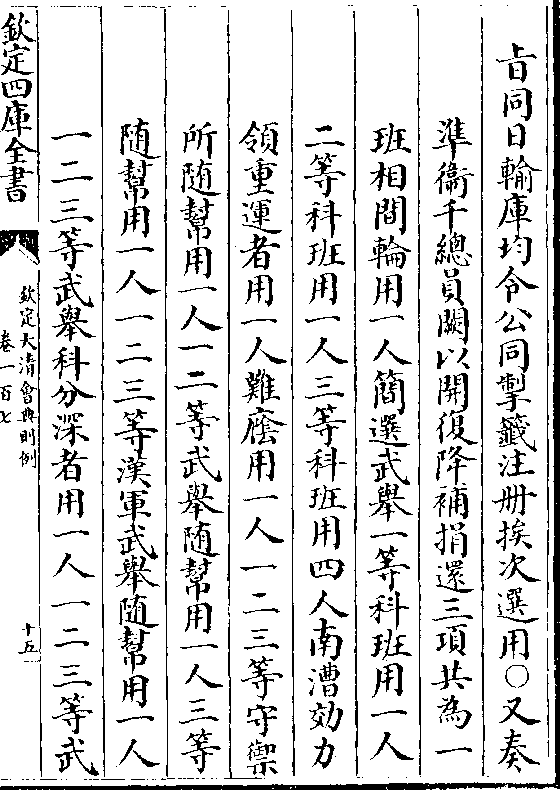 旨同日輸庫均令公同掣籤注册挨次選用○又奏
準衞千總員闕以開復降補捐還三項共為一
班相間輪用一人簡選武舉一等科班用一人
二等科班用一人三等科班用四人南漕効力
領重運者用一人難廕用一人一二三等守禦
所随幫用一人一二等武舉随幫用一人三等
随幫用一人一二三等漢軍武舉随幫用一人
一二三等武舉科分深者用一人一二三等武
欽定四庫全書
欽定大清會典則例
卷一百七
十五